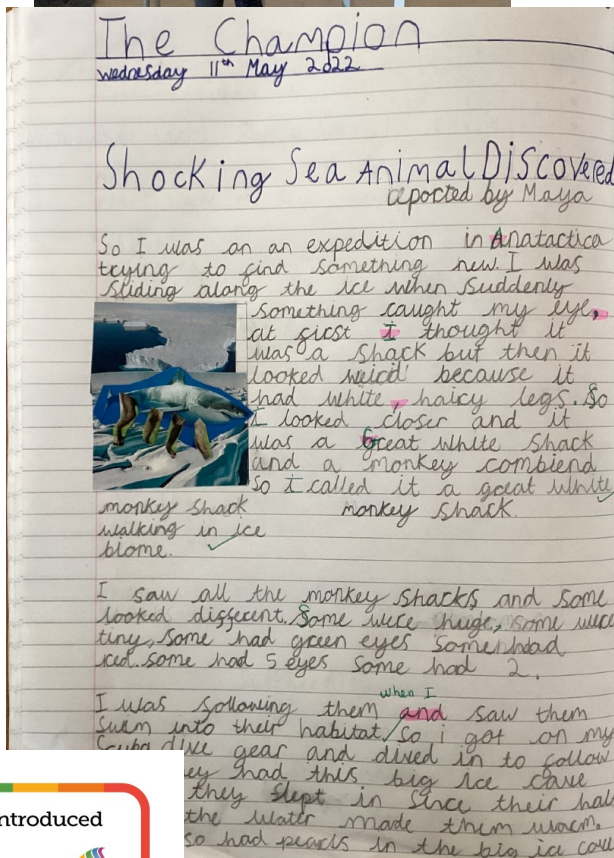 The Champion
Wednesday 11th May 2022
Shocking Sea Animal Discovered
reported by Maya
So I was on an expedition in Anatactica
trying to find something new. I was
sliding along the ice when suddenly
something caught my eye,
at first I thought it
was a shark but then it
looked weird because it
had white, hairy legs. So
I looked closer and it
was a Great white shark
and a monkey combiend
so i called it a great white
monkey shark.
monkey shark
walking in ice
biome.
I saw all the monkey sharks and some
looked different. Some were huge, some were
tiny, some had green eyes some had
red. some had 5 eyes some had 2.
when I
I was following them and saw them
swim into their habitat, so i got on my
Scuba dive gear and dived in to follow
ey had this big ice cave
they slept in since their
the water made them warm.
so had pearls in the big ice
ntroduced